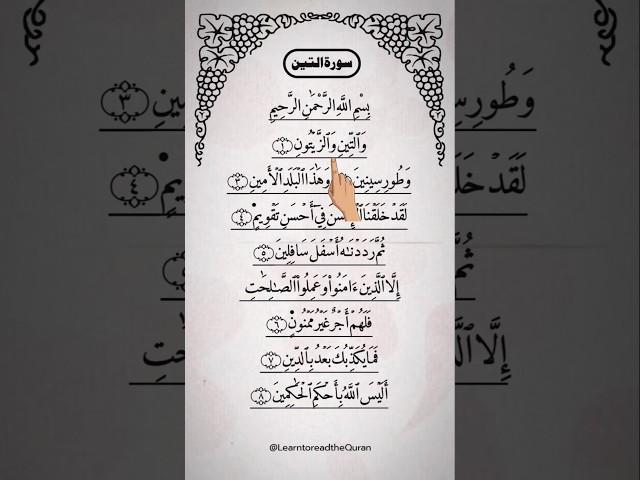 سورة التين
بِسْمِ اللَّهِ الرَّحْمَٰنِ الرَّحِيمِ
وَالتِّينِ وَالزَّيْتُونِ ١
وَطُورِ سِينِينَ وَهَٰذَا الْبَلَدِ الْأَمِينِ ٣
لَقَدْ خَلَقْنَا الْإِنْسَٰنَ فِي أَحْسَنِ تَقْوِيمٍ ٤
ثُمَّ رَدَدْنَٰهُ أَسْفَلَ سَافِلِينَ ٥
إِلَّا الَّذِينَ ءَامَنُوا وَعَمِلُوا الصَّٰلِحَٰتِ
فَلَهُمْ أَجْرٌ غَيْرُ مَمْنُونٍ ٦
فَمَا يُكَذِّبُكَ بَعْدُ بِالدِّينِ ٧
أَلَيْسَ اللَّهُ بِأَحْكَمِ الْحَٰكِمِينَ ٨
@LearntoreadtheQuran